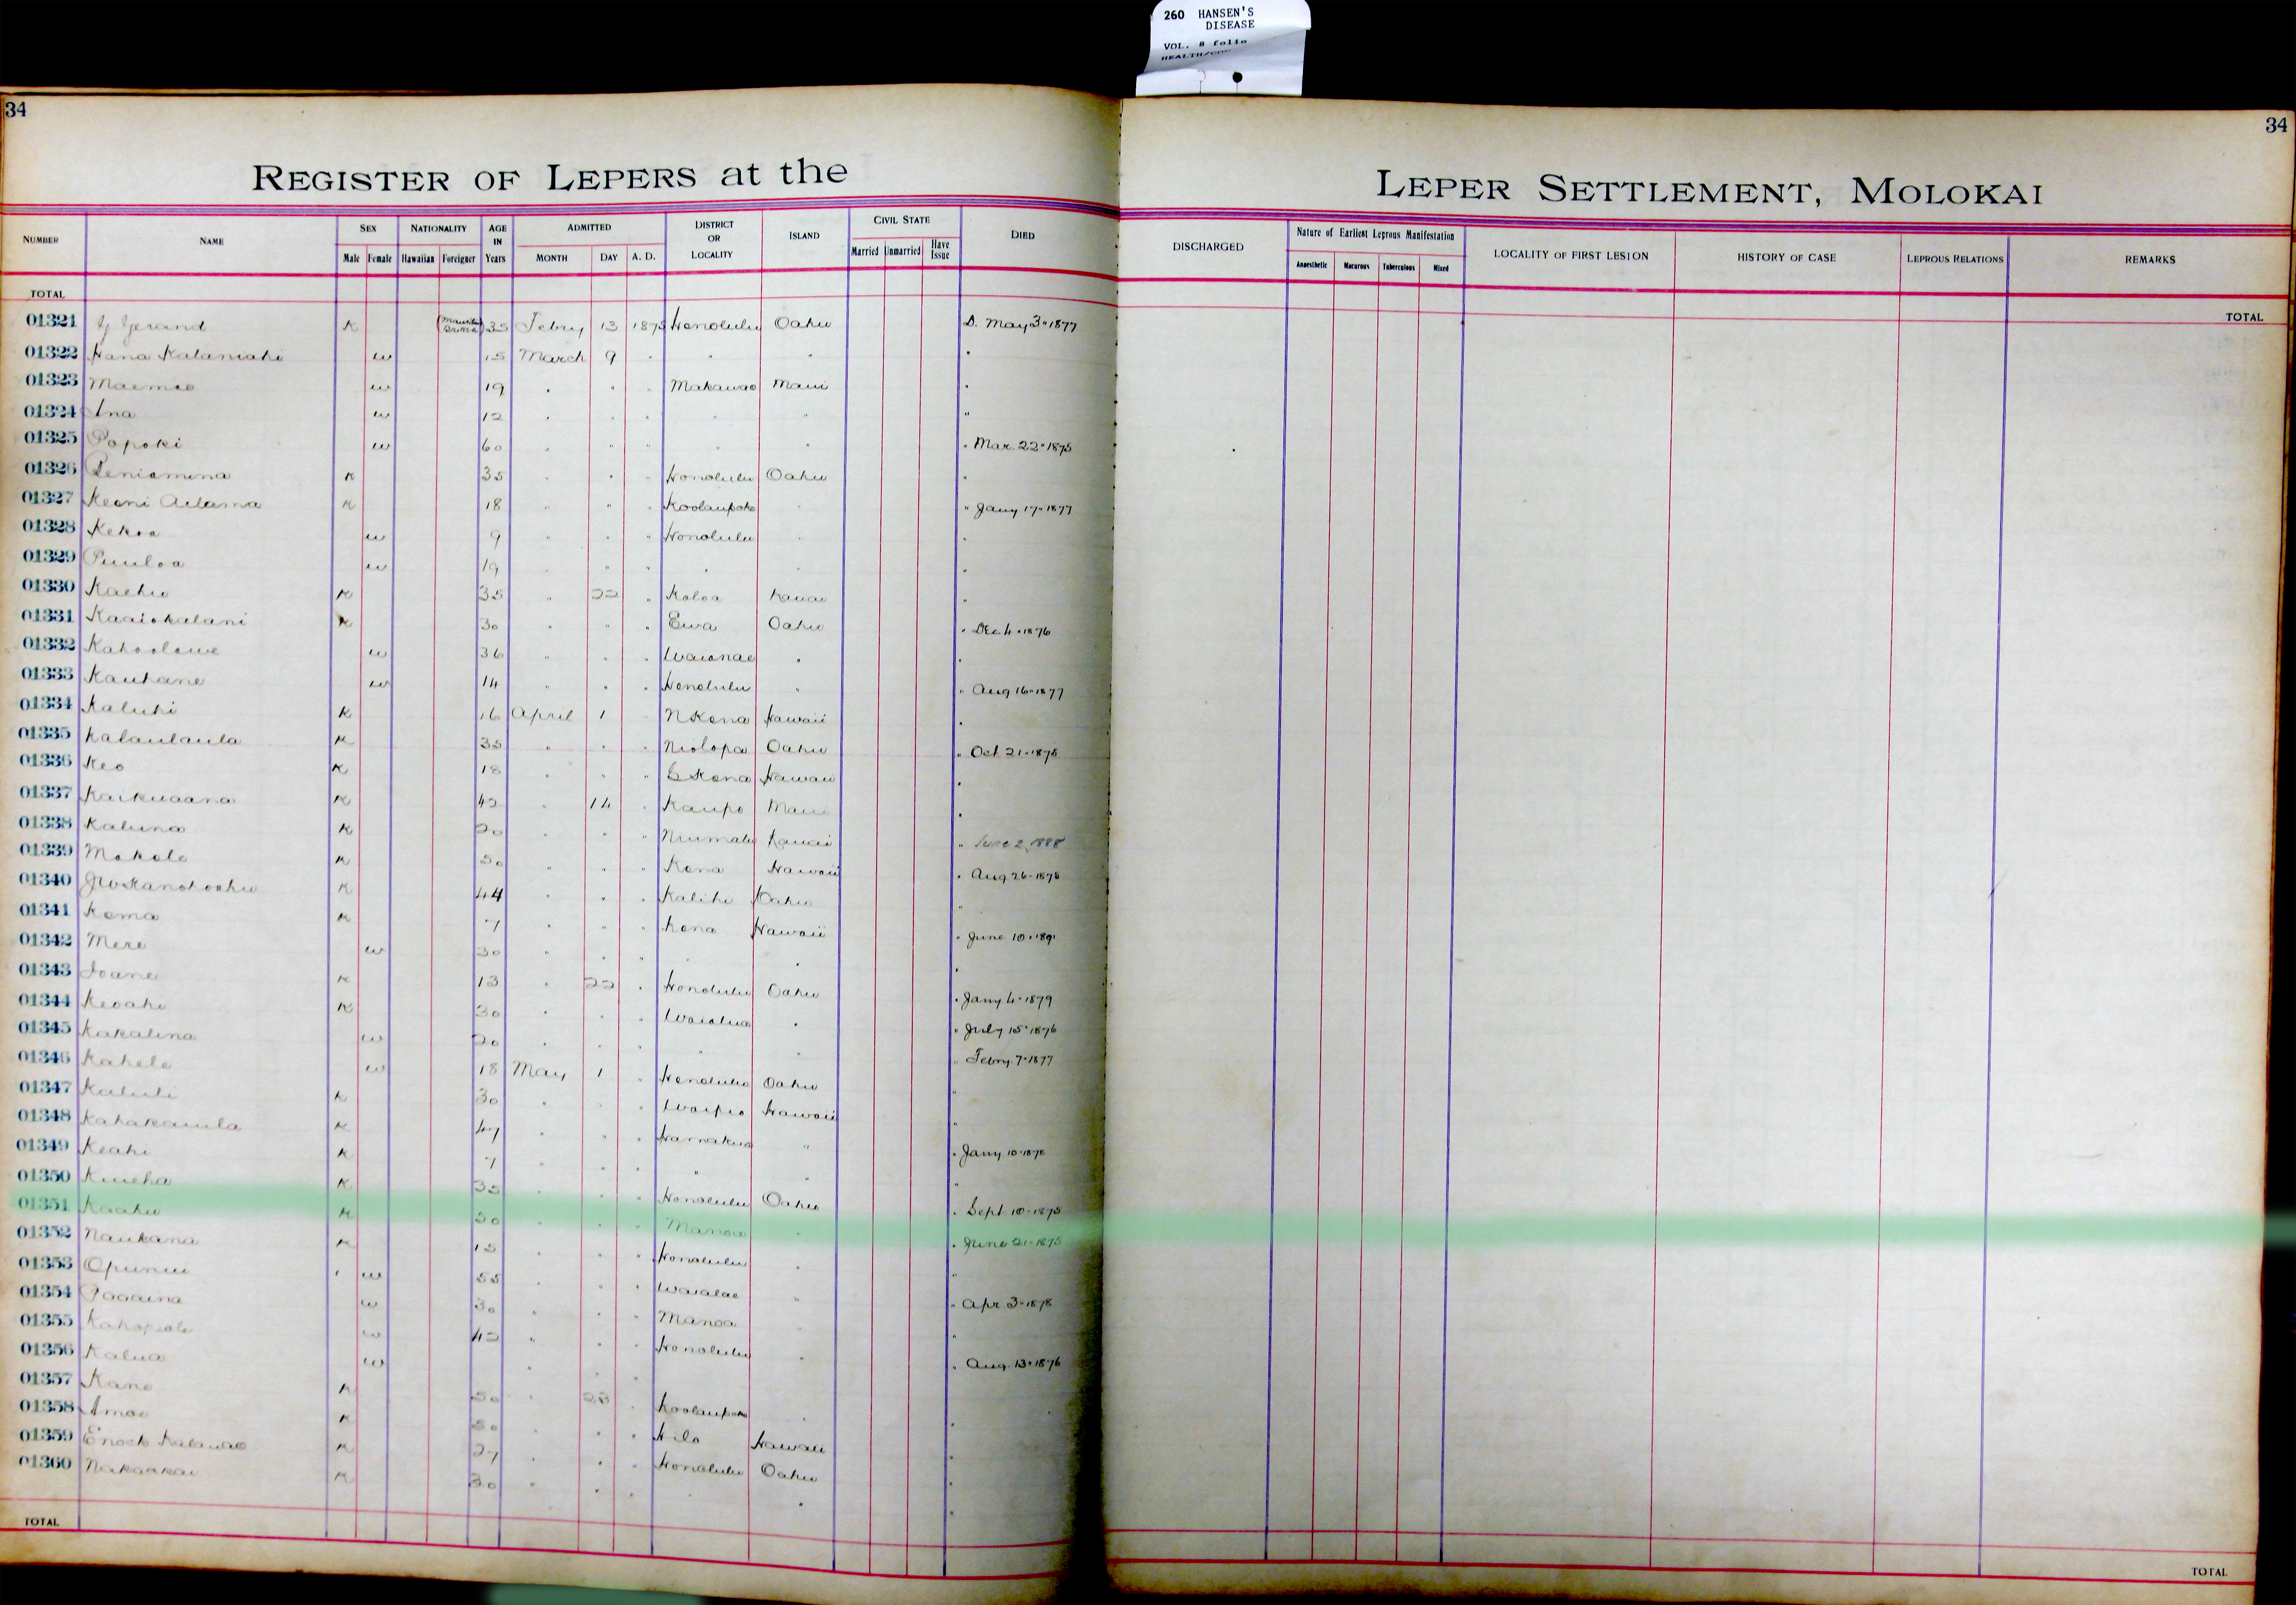 260 HANSEN'S
DISEASE
VOL. 8 folio
34
34
REGISTER OF LEPERS at the
LEPER SETTLEMENT, MOLOKAI
NUMBER NAME SEX Male Female NATIONALITY Hawaiian Foreigner AGE IN Years ADMITTED MONTH DAY A. D. DISTRICT OR LOCALITY ISLAND CIVIL STATE Married Unmarried Have Issue DIED
DISCHARGED Nature of Earliest Leprous Manifestation Anaesthetic Macurous Tuberculous Mixed LOCALITY OF FIRST LESION HISTORY OF CASE LEPROUS RELATIONS REMARKS
TOTAL
TOTAL
01321 Gerand K 35 Febry 13 1875 Honolulu Oahu D. May 3 " 1877
01322 Hana Kalaniahi w 15 March 9 " " " "
01323 Maemae w 19 " " " Makawao Maui "
01324 Ana w 12 " " " " " "
01325 Popoki w 60 " " " " " " Mar. 22 " 1875
01326 Peniamina K 35 " " " Honolulu Oahu "
01327 Keoni Adama K 18 " " " Koolaupoko " " Jany 17 " 1877
01328 Kekoa w 9 " " " Honolulu " "
01329 Puuloa w 19 " " " " " "
01330 Kaehu K 35 " 22 " Koloa Kauai "
01331 Kaaiokalani K 30 " " " Ewa Oahu " Dec 4 " 1876
01332 Kahoolawe w 36 " " " Waianae " "
01333 Kauhane w 14 " " " Honolulu " " Aug 16 " 1877
01334 Kaluhi K 16 April 1 " N Kona Hawaii "
01335 Kalaulaula K 35 " " " Niolopa Oahu " Oct 21 " 1878
01336 Keo K 18 " " " S Kona Hawaii "
01337 Kaikuaana K 42 " 14 " Kaupo Maui "
01338 Kaluna K 20 " " " Niumalu Kauai " June 2, 1888
01339 Makole K 50 " " " Kona Hawaii " Aug 26 " 1878
01340 JW Kanohoohu K 44 " " " Kalihi Oahu "
01341 Koma K 7 " " " Kona Hawaii " June 10 " 1891
01342 Mere w 30 " " " " " "
01343 Ioane K 13 " 22 " Honolulu Oahu " Jany 4 " 1879
01344 Keoahi K 30 " " " Waialua " " July 15 " 1876
01345 Kakalina w 20 " " " " " " Febry. 7 " 1877
01346 Kahele w 18 May 1 " Honolulu Oahu "
01347 Kaluli K 30 " " " Waipio Hawaii "
01348 Kahakauila K 47 " " " Hamakua " " Jany 10 " 1878
01349 Keahi K 7 " " " " " "
01350 Kuieha K 35 " " " Honolulu Oahu " Sept 10 " 1875
01351 Kaahu K 50 " " " Manoa " " June 21 " 1875
01352 Naukana K 15 " " " Honolulu " "
01353 Opunui w 55 " " " Waialae " " Apr 3 " 1878
01354 Paaaina w 30 " " " Manoa " "
01355 w 42 " " " Honolulu " " Aug. 13 " 1876
01356 Kalua w " " "
01357 Kane K 50 " 28 " Koolaupoko " "
01358 Amoe K 50 " " " Hilo Hawaii "
01359 Enock Kalawao K 27 " " " Honolulu Oahu "
01360 Nakaakai K 30 " " " " " "
TOTAL
TOTAL